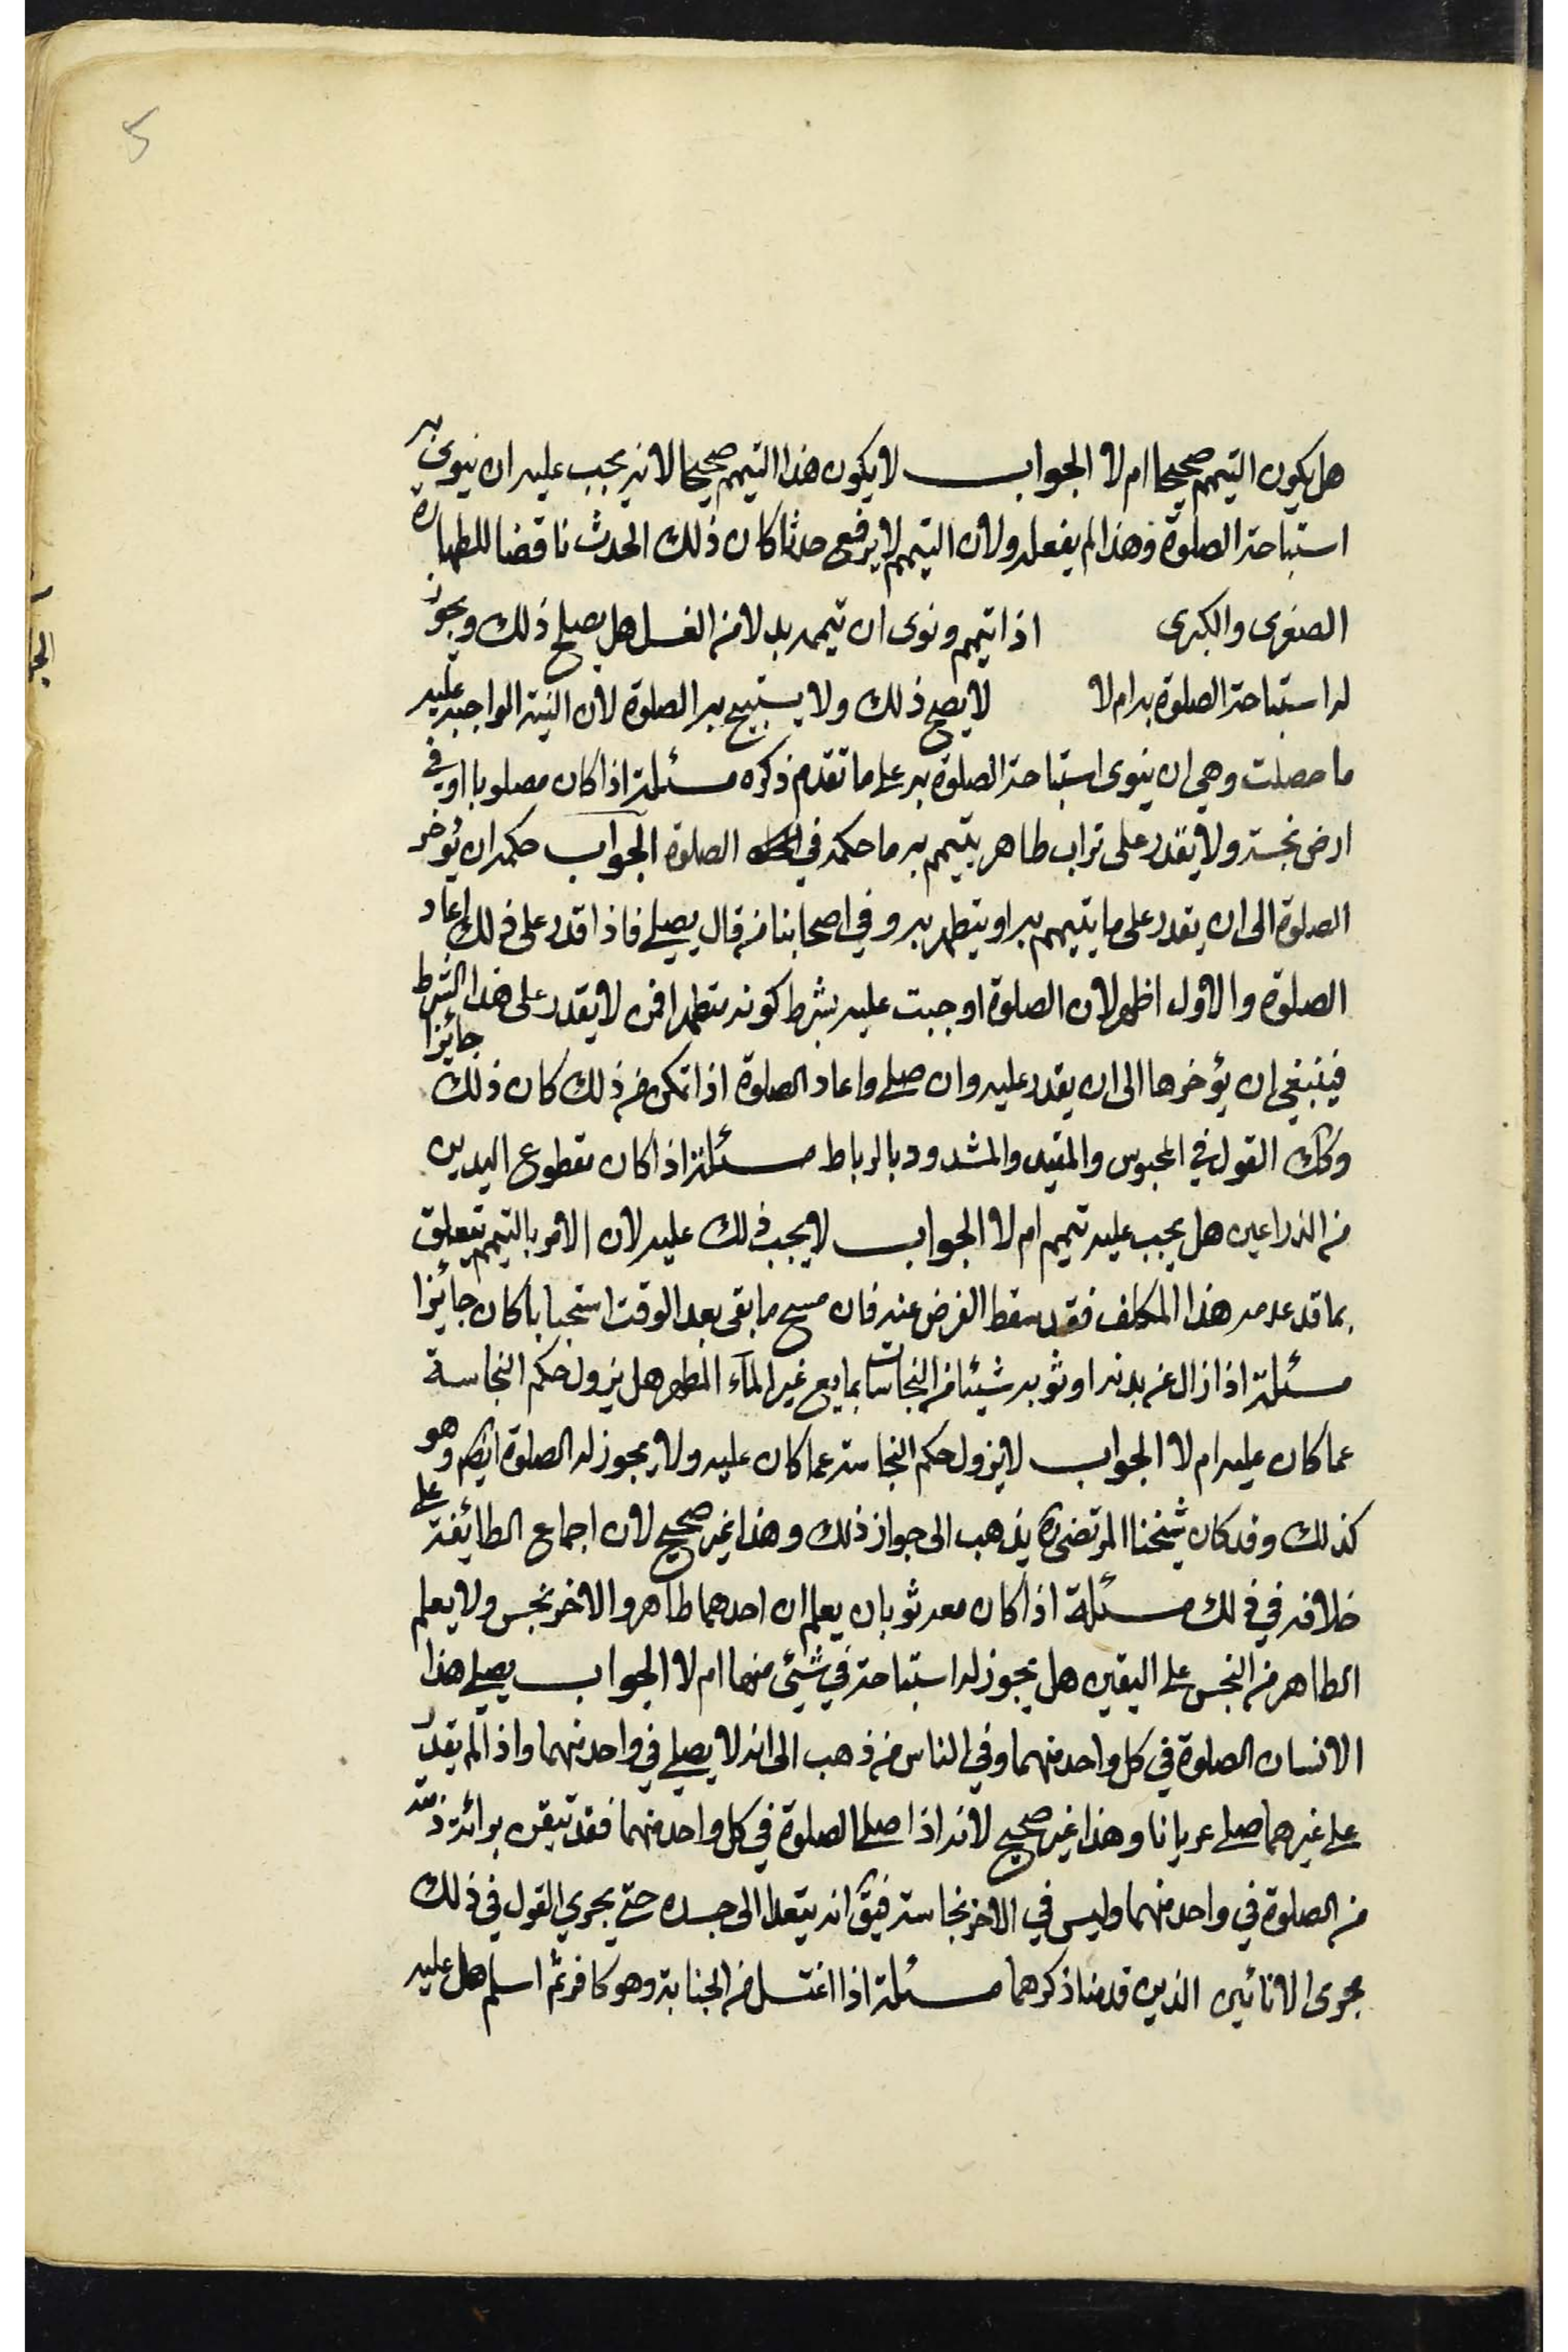 5
هل يكون التيمم صحيحا ام لا الجواب لا يكون هذا التيمم صحيحا لانه يجب عليه ان ينوي به
استباحة الصلوة وهذا لم يفعله ولان التيمم لا يرفع حدثا كان ذلك الحدث ناقضا للطهارة
الصغرى والكبرى اذا تيمم ونوى ان تيممه بدلا من الغسل هل يصح ذلك ويجوز
له استباحة الصلوة به ام لا لا يصح ذلك ولا يستبيح به الصلوة لان النية الواجبة عليه
ما حصلت وهي ان ينوى استباحة الصلوة به على ما تقدم ذكره مسئلة اذا كان مصلوبا او في
ارض نجسة ولا يقدر على تراب طاهر يتيمم به ما حكمه في الصلوة الجواب حكمه ان يؤخر
الصلوة الى ان يقدر على ما يتيمم به او يتطهر به وفي اصحابنا من قال يصلي فاذا قدر على ذلك اعاد
الصلوة والاول اظهر لان الصلوة اوجبت عليه بشرط كونه متطهرا فمن لا يقدر على هذا الشرط
فينبغي ان يؤخرها الى ان يقدر عليه وان صلى واعاد الصلوة اذا تمكن من ذلك كان ذلك جائزا
وكك القول في المحبوس والمقيد والمشدود بالرباط مسئلة اذا كان مقطوع اليدين
من الذراعين هل يجب عليه تيمم ام لا الجواب لا يجب ذلك عليه لان الامر بالتيمم يتعلق
بما قد عدمه هذا المكلف فقد سقط الفرض عنه فان مسح ما بقى بعد الوقت استحبابا كان جائزا
مسئلة اذا ازال عن بدنه او ثوبه شيئا من النجاسات بمايع غير المآء المطهر هل يزول حكم النجاسة
عما كان عليه ام لا الجواب لا يزول حكم النجاسة عما كان عليه ولا يجوز له الصلوة ايضا وهو
كذلك وقد كان شيخنا المرتضى ره يذهب الى جواز ذلك وهذا غير صحيح لان اجماع الطائفة على
خلافه في ذلك مسئلة اذا كان معه ثوبان يعلم ان احدهما طاهر والاخر نجس ولا يعلم
الطاهر من النجس على اليقين هل يجوز له استباحة في شيئ منهما ام لا الجواب يصلي هذا
الانسان الصلوة في كل واحد منهما وفي الناس من ذهب الى انه لا يصلي في واحد منهما واذا لم يقدر
على غيرهما صلى عريانا وهذا غير صحيح لانه اذا صلى الصلوة في كل واحد منهما فقد تيقن برائة ذمته
من الصلوة في واحد منهما وليس في الاخر نجاسة فيق انه يتعدا الى جسده حتى يجرى القول في ذلك
مجرى الانائين الذين قدمنا ذكرهما مسئلة اذا اغتسل من الجنابة وهو كافر ثم اسلم هل عليه